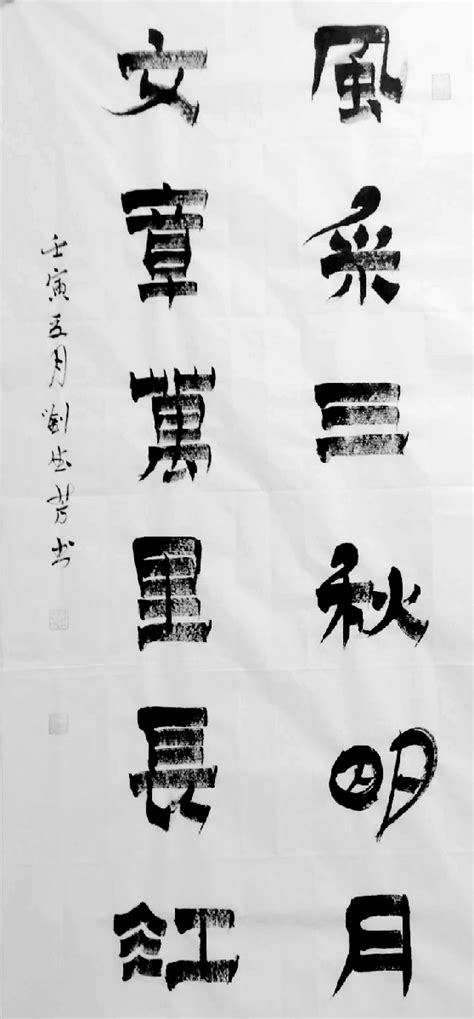 風采三秋明月
文章萬里長江
壬寅五月劉芳书